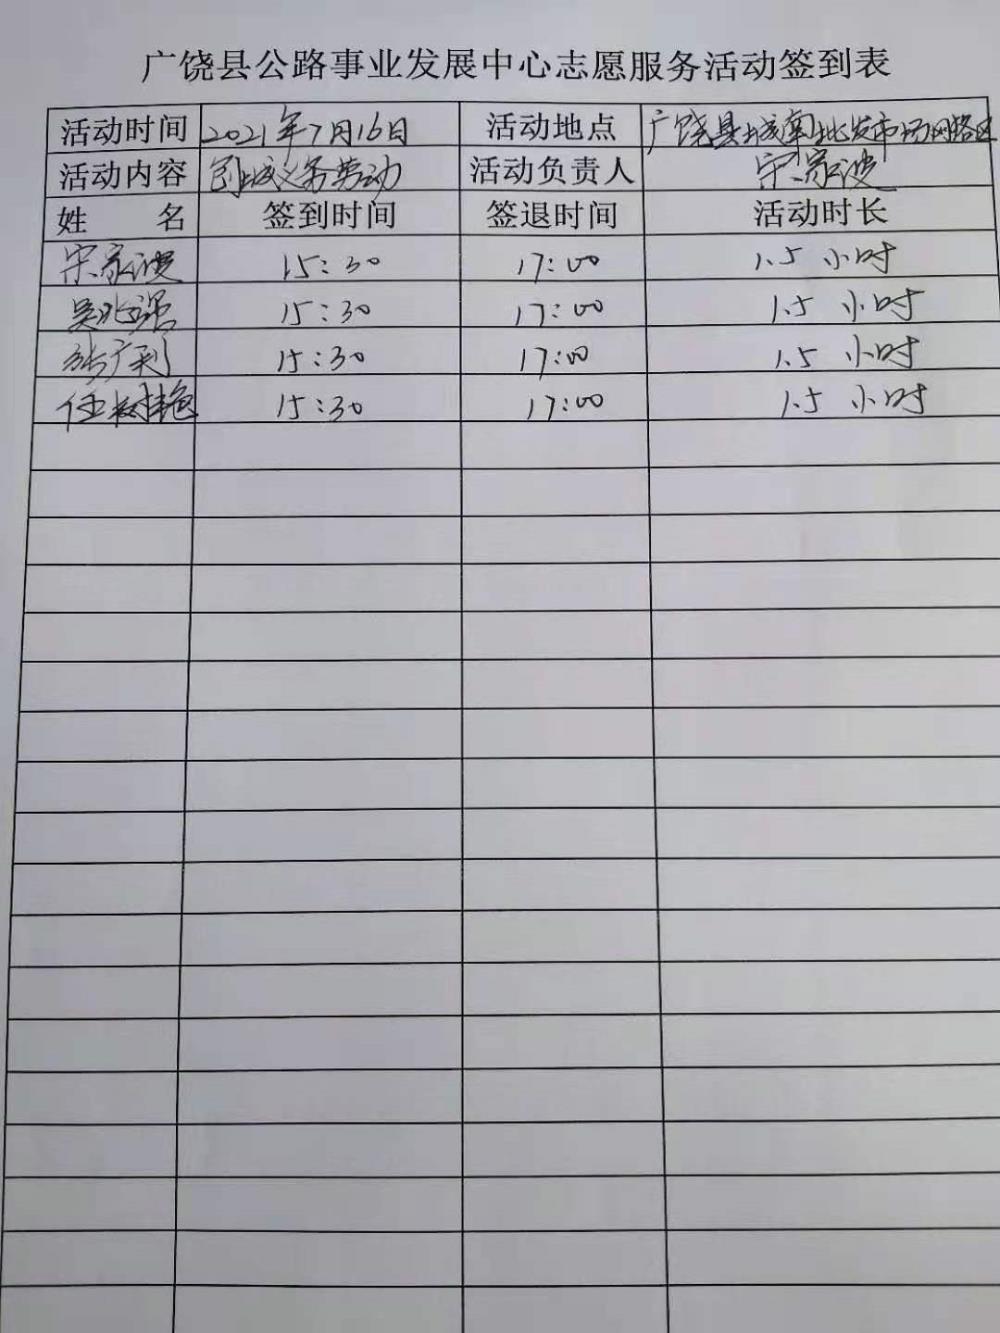 广饶县公路事业发展中心志愿服务活动签到表
活动时间 2021年7月16日 活动地点 广饶县城南批发市场网格区
活动内容 创城义务劳动 活动负责人 宋家波
姓 名 签到时间 签退时间 活动时长
宋家波 15:30 17:00 1.5 小时
吴兆强 15:30 17:00 1.5 小时
张广利 15:30 17:00 1.5 小时
任树艳 15:30 17:00 1.5 小时